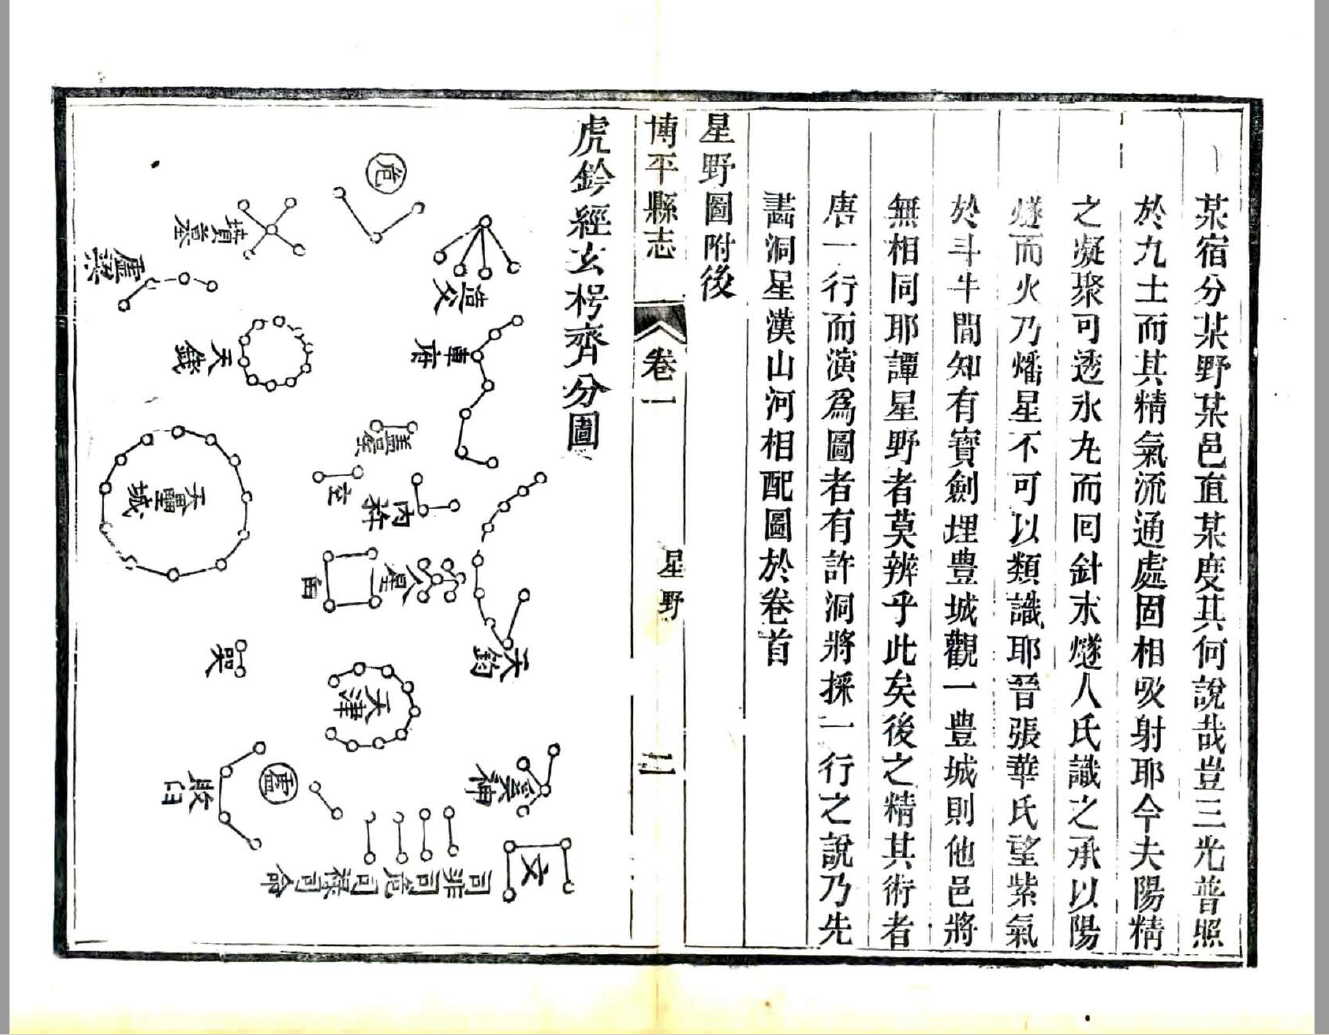 某宿分某野某邑直某度其何說哉豈三光普照
於九土而其精氣流通處固相吸射耶今夫陽精
之凝聚可透氷丸而回針末燧人氏識之承以陽
燧而火乃燔星不可以類識耶晉張華氏望紫氣
於斗牛間知有寶劍埋豊城觀一豊城則他邑將
無相同耶譚星野者莫辨乎此矣後之精其術者
唐一行而演爲圖者有許洞將採一行之說乃先
畵洞星漢山河相配圖於卷首
星野圖附後
博平縣志
卷一
星野
二
虎鈐經玄枵齊分圖
危
墳墓
虛梁
造父
天錢
車府
蓋屋
天壘城
內杵
人星
臼
哭
天鉤
天津
敗臼
虛
司非司危司祿司命